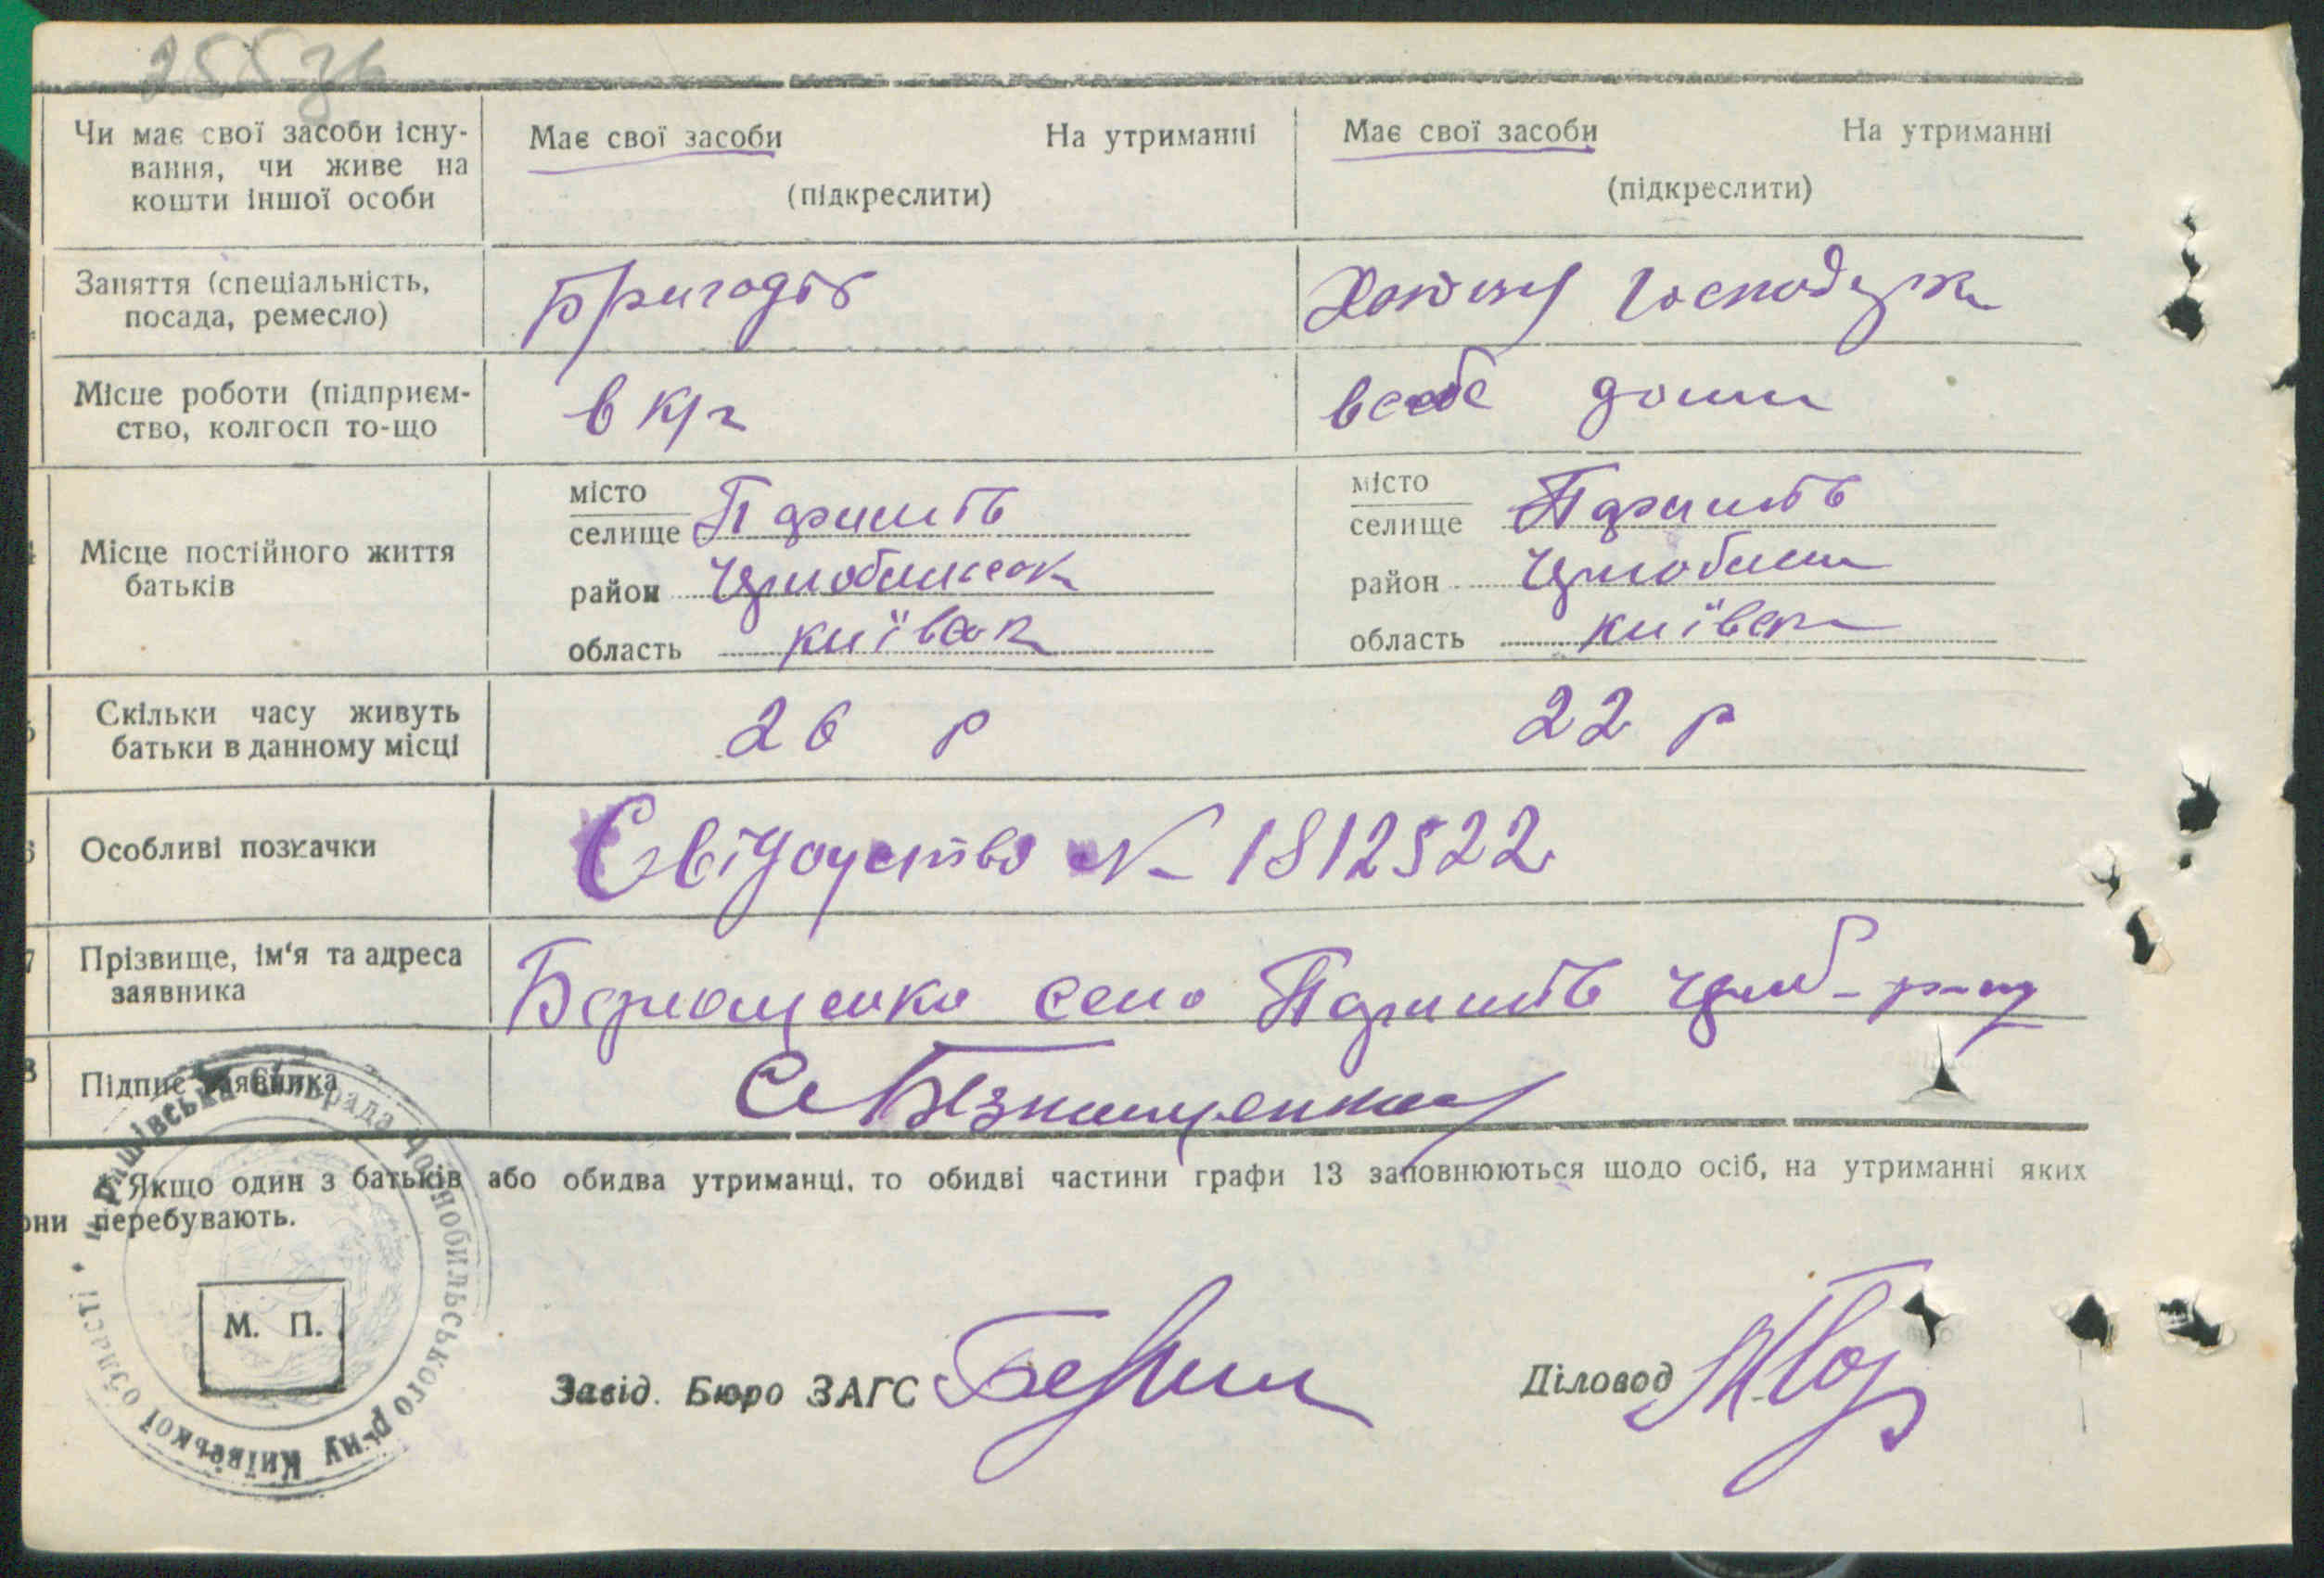 255 зв
Чи має свої засоби існу-
вання, чи живе на
кошти іншої особи
Має свої засоби На утриманні
(підкреслити)
Має свої засоби На утриманні
(підкреслити)
Заняття (спеціальність,
посада, ремесло)
Бригадір
Господарка
Місце роботи (підприєм-
ство, колгосп то-що
в к/г
в себе дома
Місце постійного життя
батьків
місто
селище Паришів
район Чорнобильск
область київск
місто
селище Паришів
район Чорнобил
область київск
Скільки часу живуть
батьки в данному місці
26 р
22 р
Особливі позначки
Свідоцтво № 1812522
Прізвище, ім'я та адреса
заявника
село Паришів Чорноб р-ну
Підпис заявника
Якщо один з батьків або обидва утриманці, то обидві частини графи 13 заповнюються щодо осіб, на утриманні яких
они перебувають.
Паришівська Сільрада Чорнобильського р-ну Київської області
М. П.
Завід. Бюро ЗАГС
Діловод